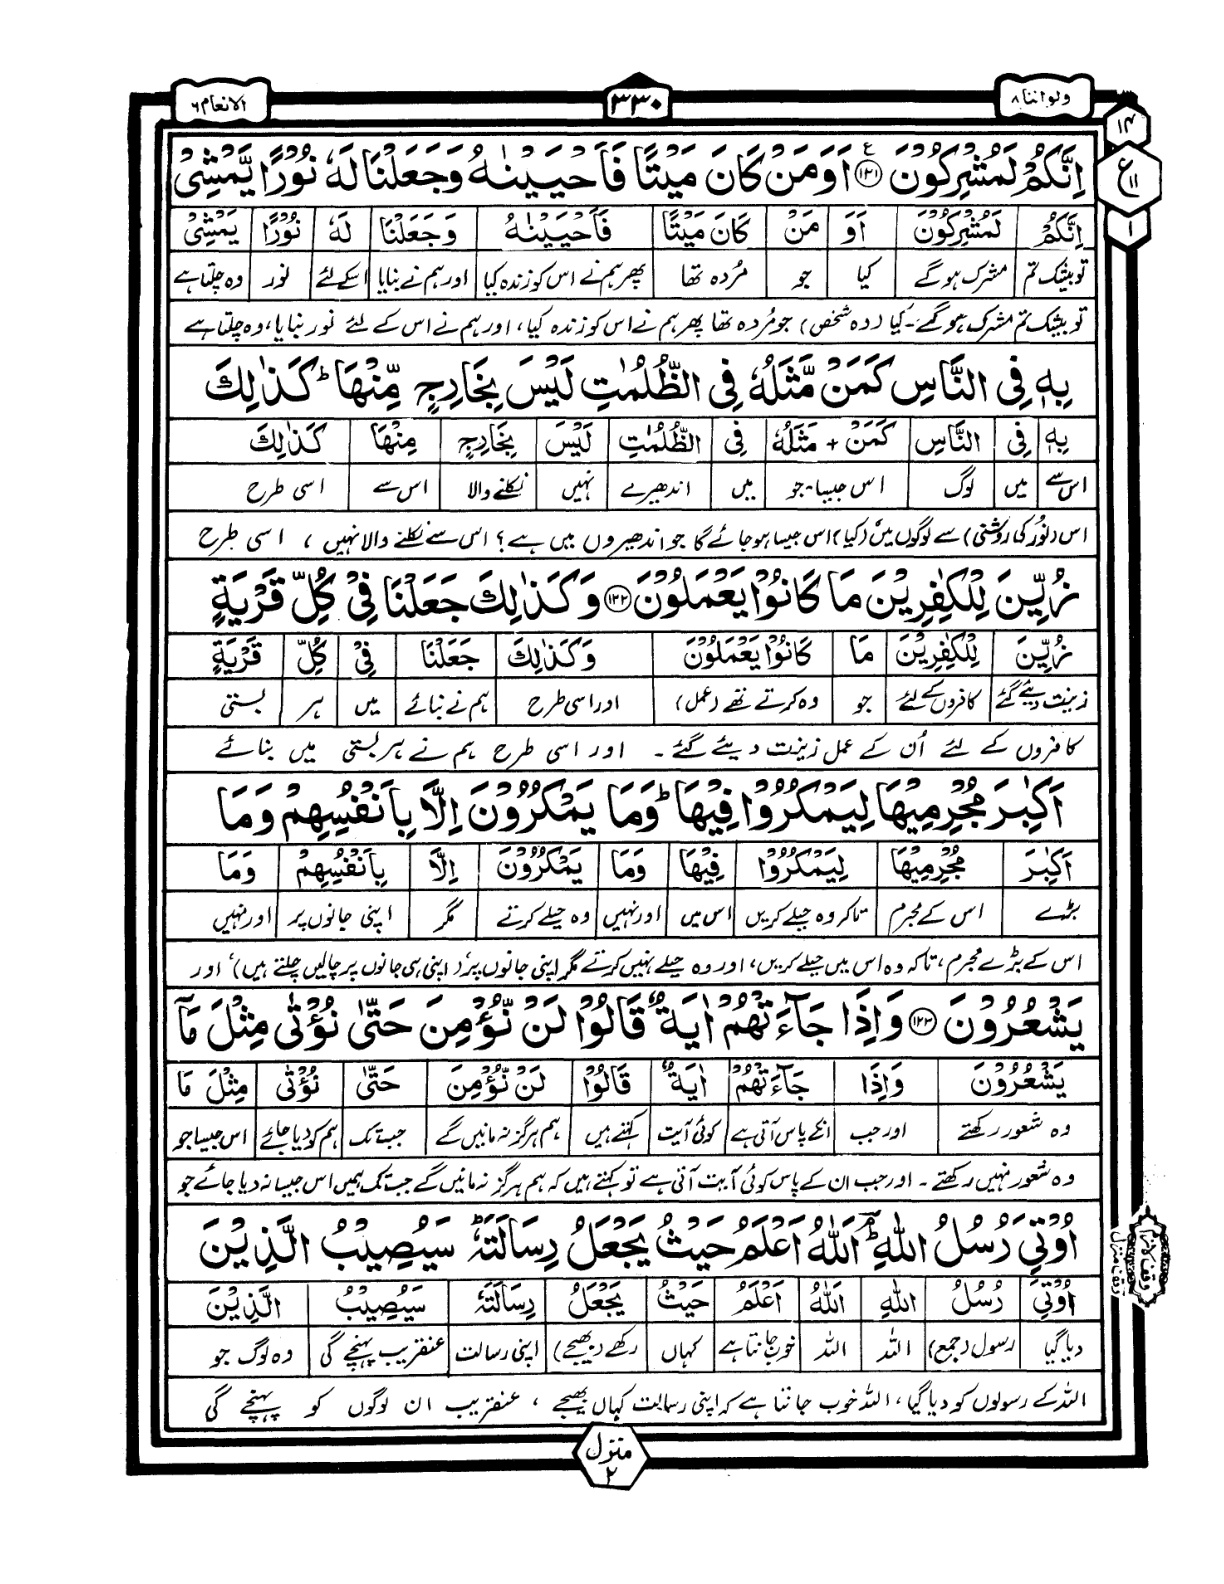 ولواننا ۸
۳۳۰
الانعام ۶
۱۴
ع
۱۱
۱
اِنَّكُمْ لَمُشْرِكُوْنَ ﴿۱۲۱﴾ اَوَمَنْ كَانَ مَيْتًا فَاَحْيَيْنٰهُ وَجَعَلْنَا لَهٗ نُوْرًا يَّمْشِيْ
اِنَّكُمْ لَمُشْرِكُوْنَ اَوَ مَنْ كَانَ مَيْتًا فَاَحْيَيْنٰهُ وَجَعَلْنَا لَهٗ نُوْرًا يَّمْشِيْ
تو بیشک تم مشرک ہوگے کیا جو مُردہ تھا پھر ہم نے اس کو زندہ کیا اور ہم نے بنایا اسکے لئے نور وہ چلتا ہے
تو بیشک تم مشرک ہوگے۔ کیا (وہ شخص) جو مُردہ تھا پھر ہم نے اس کو زندہ کیا، اور ہم نے اس کے لئے نور بنایا، وہ چلتا ہے
بِهٖ فِي النَّاسِ كَمَنْ مَّثَلُهٗ فِي الظُّلُمٰتِ لَيْسَ بِخَارِجٍ مِّنْهَا ؕ كَذٰلِكَ
بِهٖ فِي النَّاسِ كَمَنْ + مَّثَلُهٗ فِي الظُّلُمٰتِ لَيْسَ بِخَارِجٍ مِّنْهَا كَذٰلِكَ
اس سے میں لوگ اس جیسا۔ جو میں اندھیرے نہیں نکلنے والا اس سے اسی طرح
اس (نُور کی روشنی) سے لوگوں میں (کیا) اس جیسا ہوجائے گا جو اندھیروں میں ہے؟ اس سے نکلنے والا نہیں ، اسی طرح
زُيِّنَ لِلْكٰفِرِيْنَ مَا كَانُوْا يَعْمَلُوْنَ ﴿۱۲۲﴾ وَكَذٰلِكَ جَعَلْنَا فِيْ كُلِّ قَرْيَةٍ
زُيِّنَ لِلْكٰفِرِيْنَ مَا كَانُوْا يَعْمَلُوْنَ وَكَذٰلِكَ جَعَلْنَا فِيْ كُلِّ قَرْيَةٍ
زینت دیئے گئے کافروں کے لئے جو وہ کرتے تھے (عمل) اور اسی طرح ہم نے بنائے میں ہر بستی
کافروں کے لئے اُن کے عمل زینت دیئے گئے ۔ اور اسی طرح ہم نے ہر بستی میں بنائے
اَكٰبِرَ مُجْرِمِيْهَا لِيَمْكُرُوْا فِيْهَا ؕ وَمَا يَمْكُرُوْنَ اِلَّا بِاَنْفُسِهِمْ وَمَا
اَكٰبِرَ مُجْرِمِيْهَا لِيَمْكُرُوْا فِيْهَا وَمَا يَمْكُرُوْنَ اِلَّا بِاَنْفُسِهِمْ وَمَا
بڑے اس کے مجرم تاکہ وہ حیلے کریں اس میں اور نہیں وہ حیلے کرتے مگر اپنی جانوں پر اور نہیں
اس کے بڑے مجرم، تاکہ وہ اس میں حیلے کریں، اور وہ حیلے نہیں کرتے مگر اپنی جانوں پر (اپنی ہی جانوں پر چالیں چلتے ہیں)، اور
يَشْعُرُوْنَ ﴿۱۲۳﴾ وَاِذَا جَآءَتْهُمْ اٰيَةٌ قَالُوْا لَنْ نُّؤْمِنَ حَتّٰى نُؤْتٰى مِثْلَ مَآ
يَشْعُرُوْنَ وَاِذَا جَآءَتْهُمْ اٰيَةٌ قَالُوْا لَنْ نُّؤْمِنَ حَتّٰى نُؤْتٰى مِثْلَ مَآ
وہ شعور رکھتے اور جب انکے پاس آتی ہے کوئی آیت کہتے ہیں ہم ہرگز نہ مانیں گے جب تک ہم کو دیا جائے اس جیسا جو
وہ شعور نہیں رکھتے ۔ اور جب ان کے پاس کوئی آیت آتی ہے تو کہتے ہیں کہ ہم ہرگز نہ مانیں گے جب تک ہمیں اس جیسا نہ دیا جائے جو
اُوْتِيَ رُسُلُ اللّٰهِ ؔؕ اَللّٰهُ اَعْلَمُ حَيْثُ يَجْعَلُ رِسَالَتَهٗ ؕ سَيُصِيْبُ الَّذِيْنَ
وقف لازم
وقف منزل
اُوْتِيَ رُسُلُ اللّٰهِ اَللّٰهُ اَعْلَمُ حَيْثُ يَجْعَلُ رِسَالَتَهٗ سَيُصِيْبُ الَّذِيْنَ
دیا گیا رسول (جمع) اللہ اللہ خوب جانتا ہے کہاں رکھے (بھیجے) اپنی رسالت عنقریب پہنچے گی وہ لوگ جو
اللہ کے رسولوں کو دیا گیا، اللہ خوب جانتا ہے کہ اپنی رسالت کہاں بھیجے ، عنقریب ان لوگوں کو پہنچے گی
منزل
۲